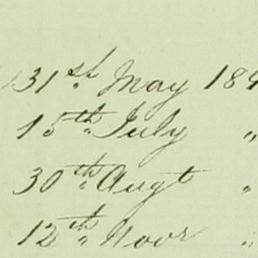 31st May 189
15th July "
30th Augt "
12th Novr "